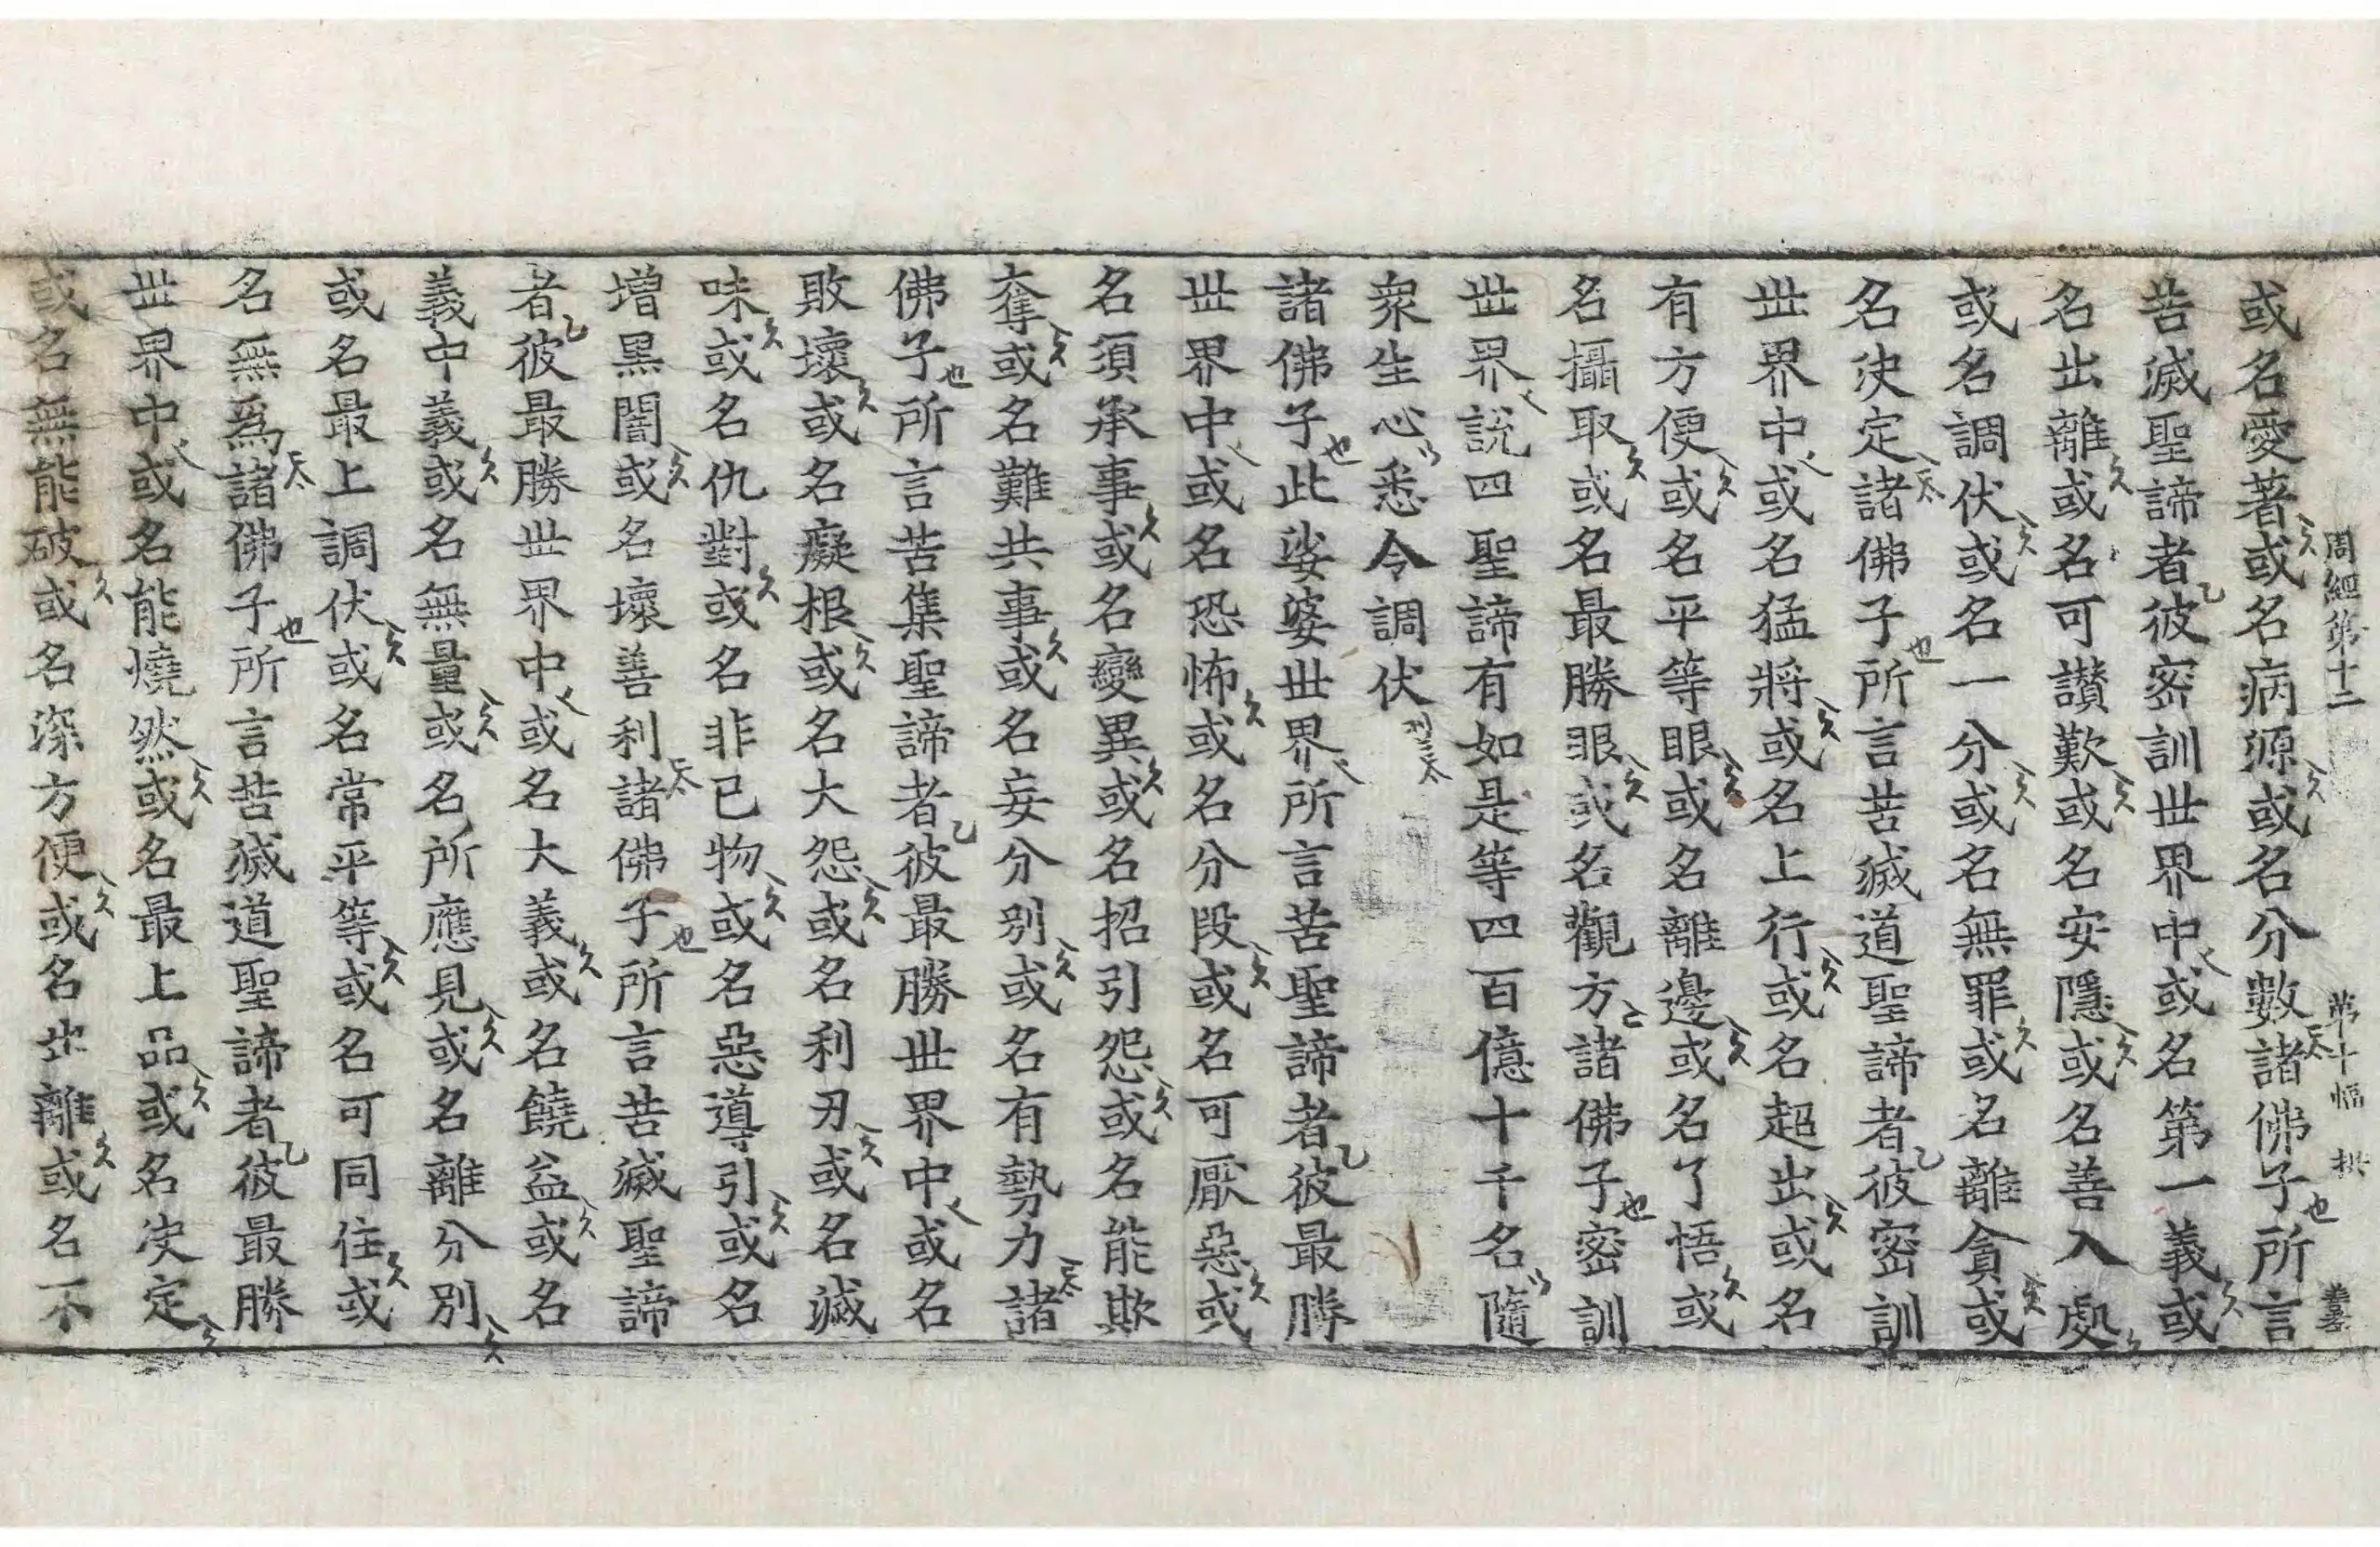 周經第十二 第十幅
或名愛著或名病源或名分數諸佛子所言
苦滅聖諦者彼密訓世界中或名第一義或
名出離或名可讚歎或名安隱或名善入處
或名調伏或名一分或名無罪或名離貪或
名決定諸佛子所言苦滅道聖諦者彼密訓
世界中或名猛將或名上行或名超出或名
有方便或名平等眼或名離邊或名了悟或
名攝取或名最勝眼或名觀方諸佛子密訓
世界說四聖諦有如是等四百億十千名隨
衆生心悉令調伏
諸佛子此娑婆世界所言苦聖諦者彼最勝
世界中或名恐怖或名分段或名可厭惡或
名須承事或名變異或名招引怨或名能欺
奪或名難共事或名妄分別或名有勢力諸
佛子所言苦集聖諦者彼最勝世界中或名
敗壞或名癡根或名大怨或名利刃或名滅
味或名仇對或名非已物或名惡導引或名
增黑闇或名壞善利諸佛子所言苦滅聖諦
者彼最勝世界中或名大義或名饒益或名
義中義或名無量或名所應見或名離分別
或名最上調伏或名常平等或名可同住或
名無爲諸佛子所言苦滅道聖諦者彼最勝
世界中或名能燒然或名最上品或名決定
或名無能破或名深方便或名出離或名不